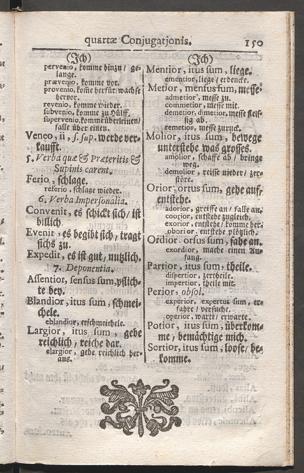 quartæ Conjugationis. 150
(Ich)
pervenio, komme hinzu / ge-
lange.
prævenio, komme vor.
provenio, komme herfür. wachse
hervor.
revenio, komme wieder.
subvenio, komme zu Hülff.
supervenio, komme überfallen /
falle über einen.
Veneo, ii, s. sup. werde ver-
kaufft.
5. Verba quæ & Præteritis &
Supinis carent.
Ferio, schlage.
referio, schlage wieder.
6. Verba Imperſonalia.
Convenit, es schickt sich / ist
billich
Evenit, es begibt sich, tragt
sichs zu.
Expedit, es ist gut, nutzlich.
7. Deponentia.
Aſſentior, ſenſus ſum, pflich-
te bey.
Blandior, itus ſum, schmei-
chele.
eblandior, erschmeichele.
Largior, itus ſum, gebe
reichlich / reiche dar.
elargior, gebe reichlich her-
aus.
(Ich)
Mentior, itus ſum, liege.
ementior, liege / erdencke.
Metior, menſus ſum, messe.
admetior, messe zu.
commetior, messe mit.
demetior, dimetior, messe fleis-
sig ab.
remetior, messe zurück.
Molior, itus ſum, bewege
unterstehe was grosses.
amolior, schaffe ab / bringe
weg.
demolior, reisse nieder / zer-
störe.
Orior, ortus ſum, gehe auf,
entstehe.
adorior, greiffe an / falle an.
coorior, entstehe zugleich.
exorior, entstehe / komme her.
oborior, entstehe plötzlich.
Ordior, orſus ſum, fahe an.
exordior, mache einen An-
fang.
Partior, itus ſum, theile.
diſpertior, zertheile.
impertior, theile mit.
Perior, obſol.
experior, expertus ſum, er-
fahre / versuche.
operior, warte / erwarte.
Potior, itus ſum, überkom-
me / bemächtige mich.
Sortior, itus ſum, loose / be-
komme.